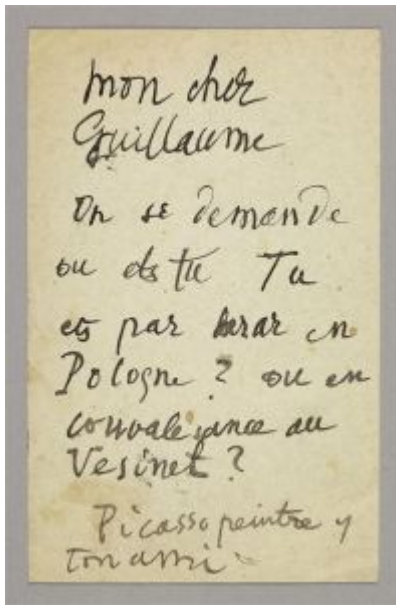 mon cher
Guillaume
On se demande
ou ets tu Tu
ets par hazar en
Pologne ? ou en
convalesance au
Vesinet ?
Picasso peintre y
ton ami